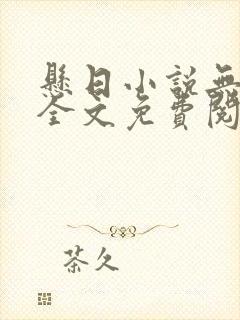 懸日小說無
全文免費閱
茶久